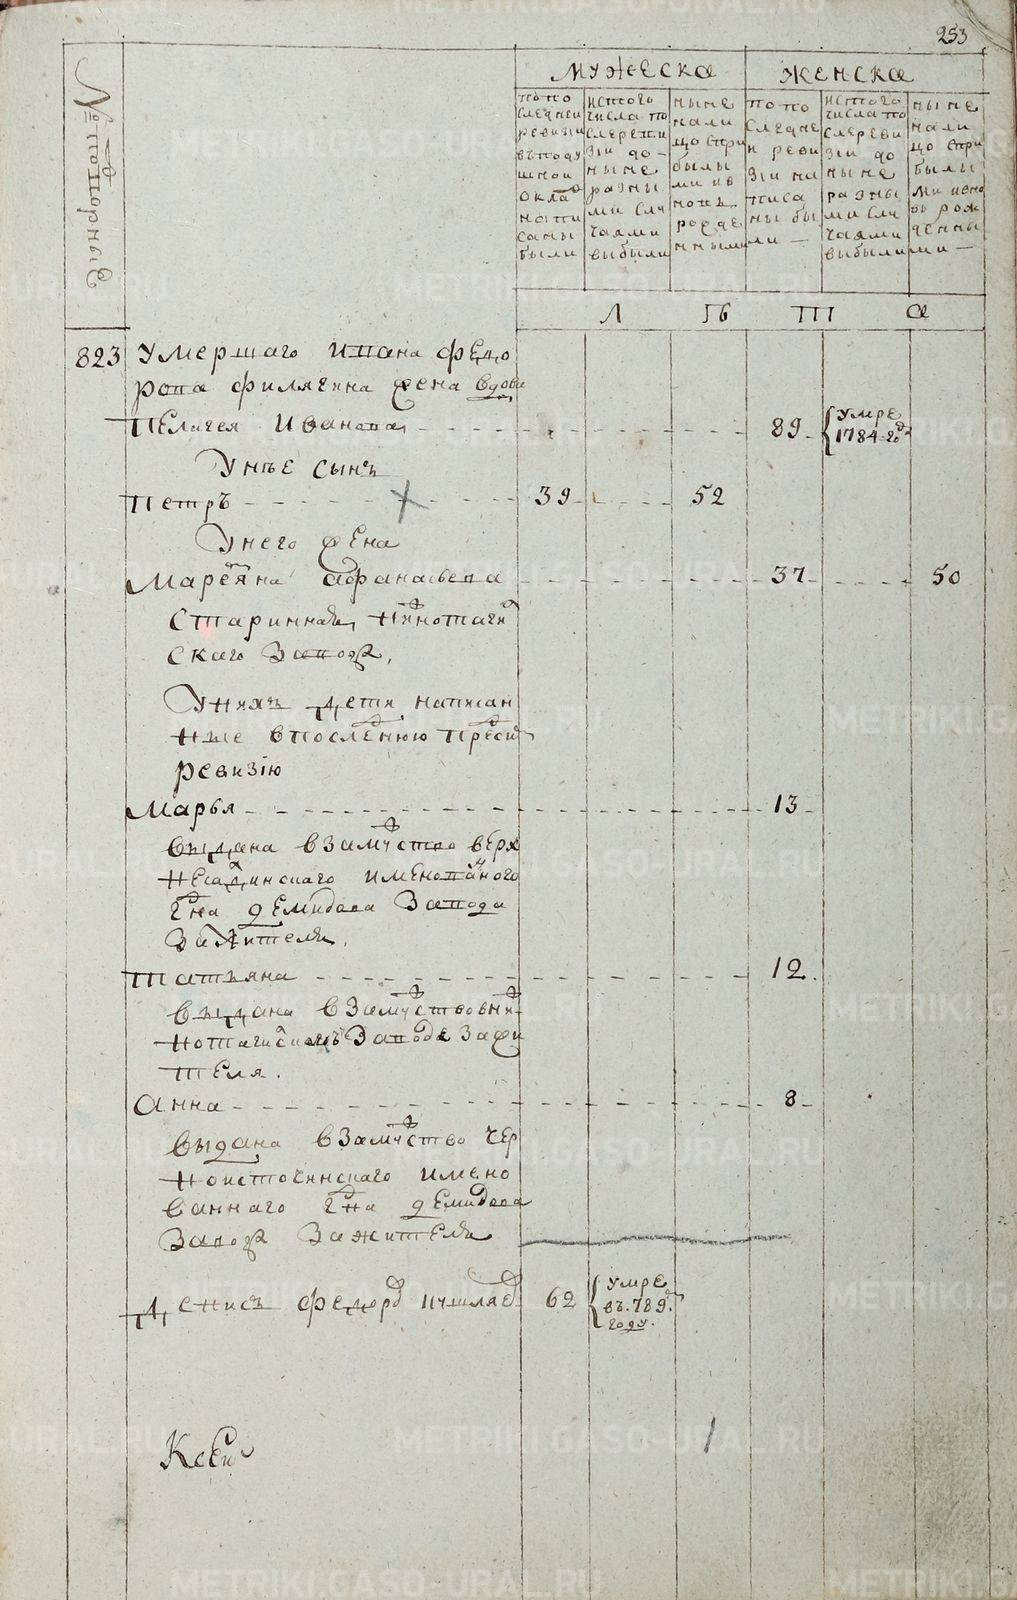 253
№ подворные
МУЖЕСКА
ЖЕНСКА
по по
следней
ревизии
въ поду
шной
окладъ
напи
саны
были
истого
числа по
слереви
зiи до
ныне
разны
ми слу
чаями
выбыли
ныне
нали
цо спри
былы
ми ив
новь
рожде
нными
по по
следне
и реви
зiи на
писа
ны бы
ли
истого
числа по
слереви
зiи до
ныне
разны
ми слу
чаями
выбыли
ныне
нали
цо спри
былы
ми ивно
вь рож
денны
ми
Л Iв т а
823 Умершаго Ивана Федо
рова Филягина жена вдова
Пелагея Иванова 89 умре
1784 год
Унъе сынъ
Петръ 39 52
Унего жена
Маремяна Афанасьева 37 50
Старинная Нижнотаги
скаго завода,
Унихъ дети написан
ные впоследнюю пред сим
ревизiю
Марья 13
выдана взамуство верх
несалдинскаго именованого
Гна Демидова завода
зажителя.
Татьяна 12
выдана взамуство вниж
нотагискомъ заводе зажи
теля.
Анна 8
выдана взамуство чер
ноисточинскаго имено
ваннаго Гна Демидова
завода зажителя
Денисъ Федоров 62 умре
въ 789.
году.
Ксеи
METRIKI.GASO-URAL.RU